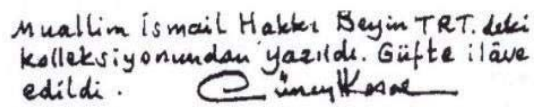 Muallim İsmail Hakkı Beyin TRT. deki
kolleksiyonundan yazıldı. Güfte ilâve
edildi. Cüneyt Kosal